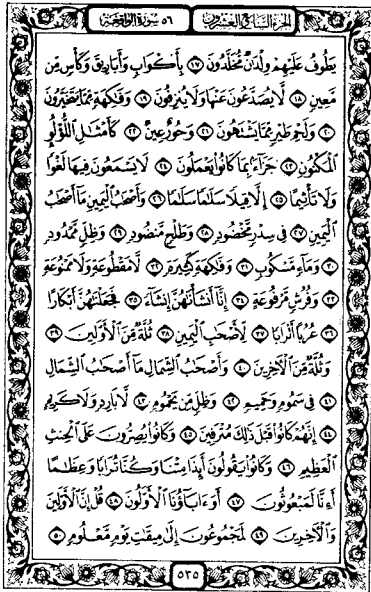 الجزء السابع والعشرون ٥٦ سورة الواقعة
يَطُوفُ عَلَيْهِمْ وِلْدَٰنٌ مُّخَلَّدُونَ ١٧ بِأَكْوَابٍ وَأَبَارِيقَ وَكَأْسٍ مِّن
مَّعِينٍ ١٨ لَّا يُصَدَّعُونَ عَنْهَا وَلَا يُنزِفُونَ ١٩ وَفَٰكِهَةٍ مِّمَّا يَتَخَيَّرُونَ
٢٠ وَلَحْمِ طَيْرٍ مِّمَّا يَشْتَهُونَ ٢١ وَحُورٌ عِينٌ ٢٢ كَأَمْثَٰلِ اللُّؤْلُؤِ
الْمَكْنُونِ ٢٣ جَزَاءً بِمَا كَانُوا يَعْمَلُونَ ٢٤ لَا يَسْمَعُونَ فِيهَا لَغْوًا
وَلَا تَأْثِيمًا ٢٥ إِلَّا قِيلًا سَلَٰمًا سَلَٰمًا ٢٦ وَأَصْحَٰبُ الْيَمِينِ مَا أَصْحَٰبُ
الْيَمِينِ ٢٧ فِي سِدْرٍ مَّخْضُودٍ ٢٨ وَطَلْحٍ مَّنضُودٍ ٢٩ وَظِلٍّ مَّمْدُودٍ
٣٠ وَمَاءٍ مَّسْكُوبٍ ٣١ وَفَٰكِهَةٍ كَثِيرَةٍ ٣٢ لَّا مَقْطُوعَةٍ وَلَا مَمْنُوعَةٍ
٣٣ وَفُرُشٍ مَّرْفُوعَةٍ ٣٤ إِنَّا أَنشَأْنَٰهُنَّ إِنشَاءً ٣٥ فَجَعَلْنَٰهُنَّ أَبْكَارًا
٣٦ عُرُبًا أَتْرَابًا ٣٧ لِّأَصْحَٰبِ الْيَمِينِ ٣٨ ثُلَّةٌ مِّنَ الْأَوَّلِينَ ٣٩
وَثُلَّةٌ مِّنَ الْآخِرِينَ ٤٠ وَأَصْحَٰبُ الشِّمَالِ مَا أَصْحَٰبُ الشِّمَالِ
٤١ فِي سَمُومٍ وَحَمِيمٍ ٤٢ وَظِلٍّ مِّن يَحْمُومٍ ٤٣ لَّا بَارِدٍ وَلَا كَرِيمٍ
٤٤ إِنَّهُمْ كَانُوا قَبْلَ ذَٰلِكَ مُتْرَفِينَ ٤٥ وَكَانُوا يُصِرُّونَ عَلَى الْحِنثِ
الْعَظِيمِ ٤٦ وَكَانُوا يَقُولُونَ أَئِذَا مِتْنَا وَكُنَّا تُرَابًا وَعِظَٰمًا
أَءِنَّا لَمَبْعُوثُونَ ٤٧ أَوَءَابَاؤُنَا الْأَوَّلُونَ ٤٨ قُلْ إِنَّ الْأَوَّلِينَ
وَالْآخِرِينَ ٤٩ لَمَجْمُوعُونَ إِلَىٰ مِيقَٰتِ يَوْمٍ مَّعْلُومٍ ٥٠
٥٣٥